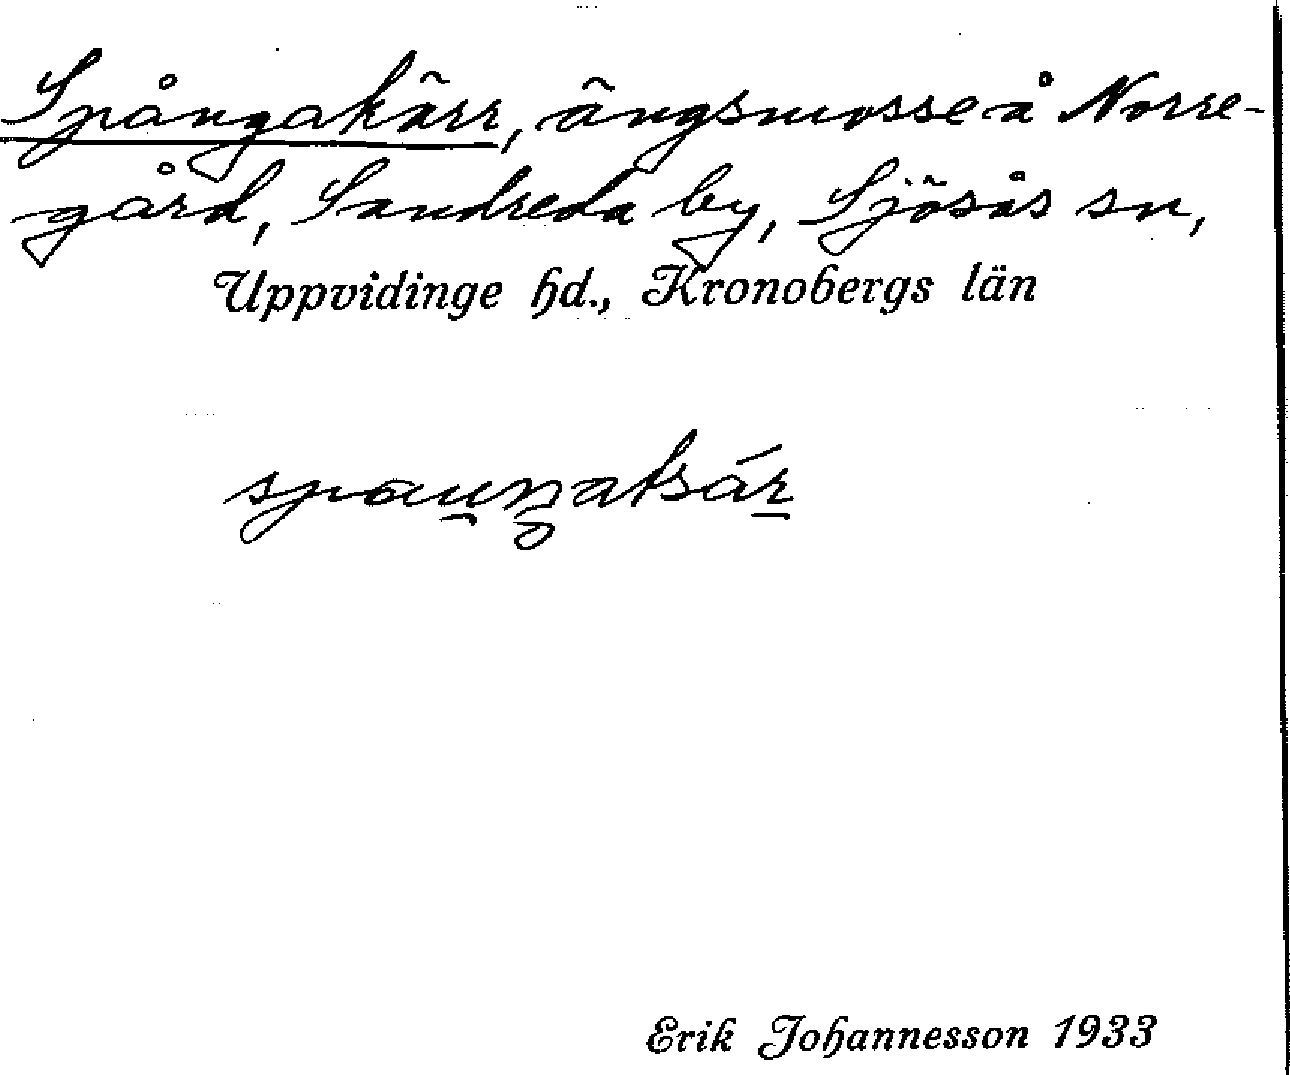 Spångakärr, ängsmosse å Norre-
gård, Sandreda by, Sjösås sn,
Uppvidinge hd., Kronobergs län
Erik Johannesson 1933